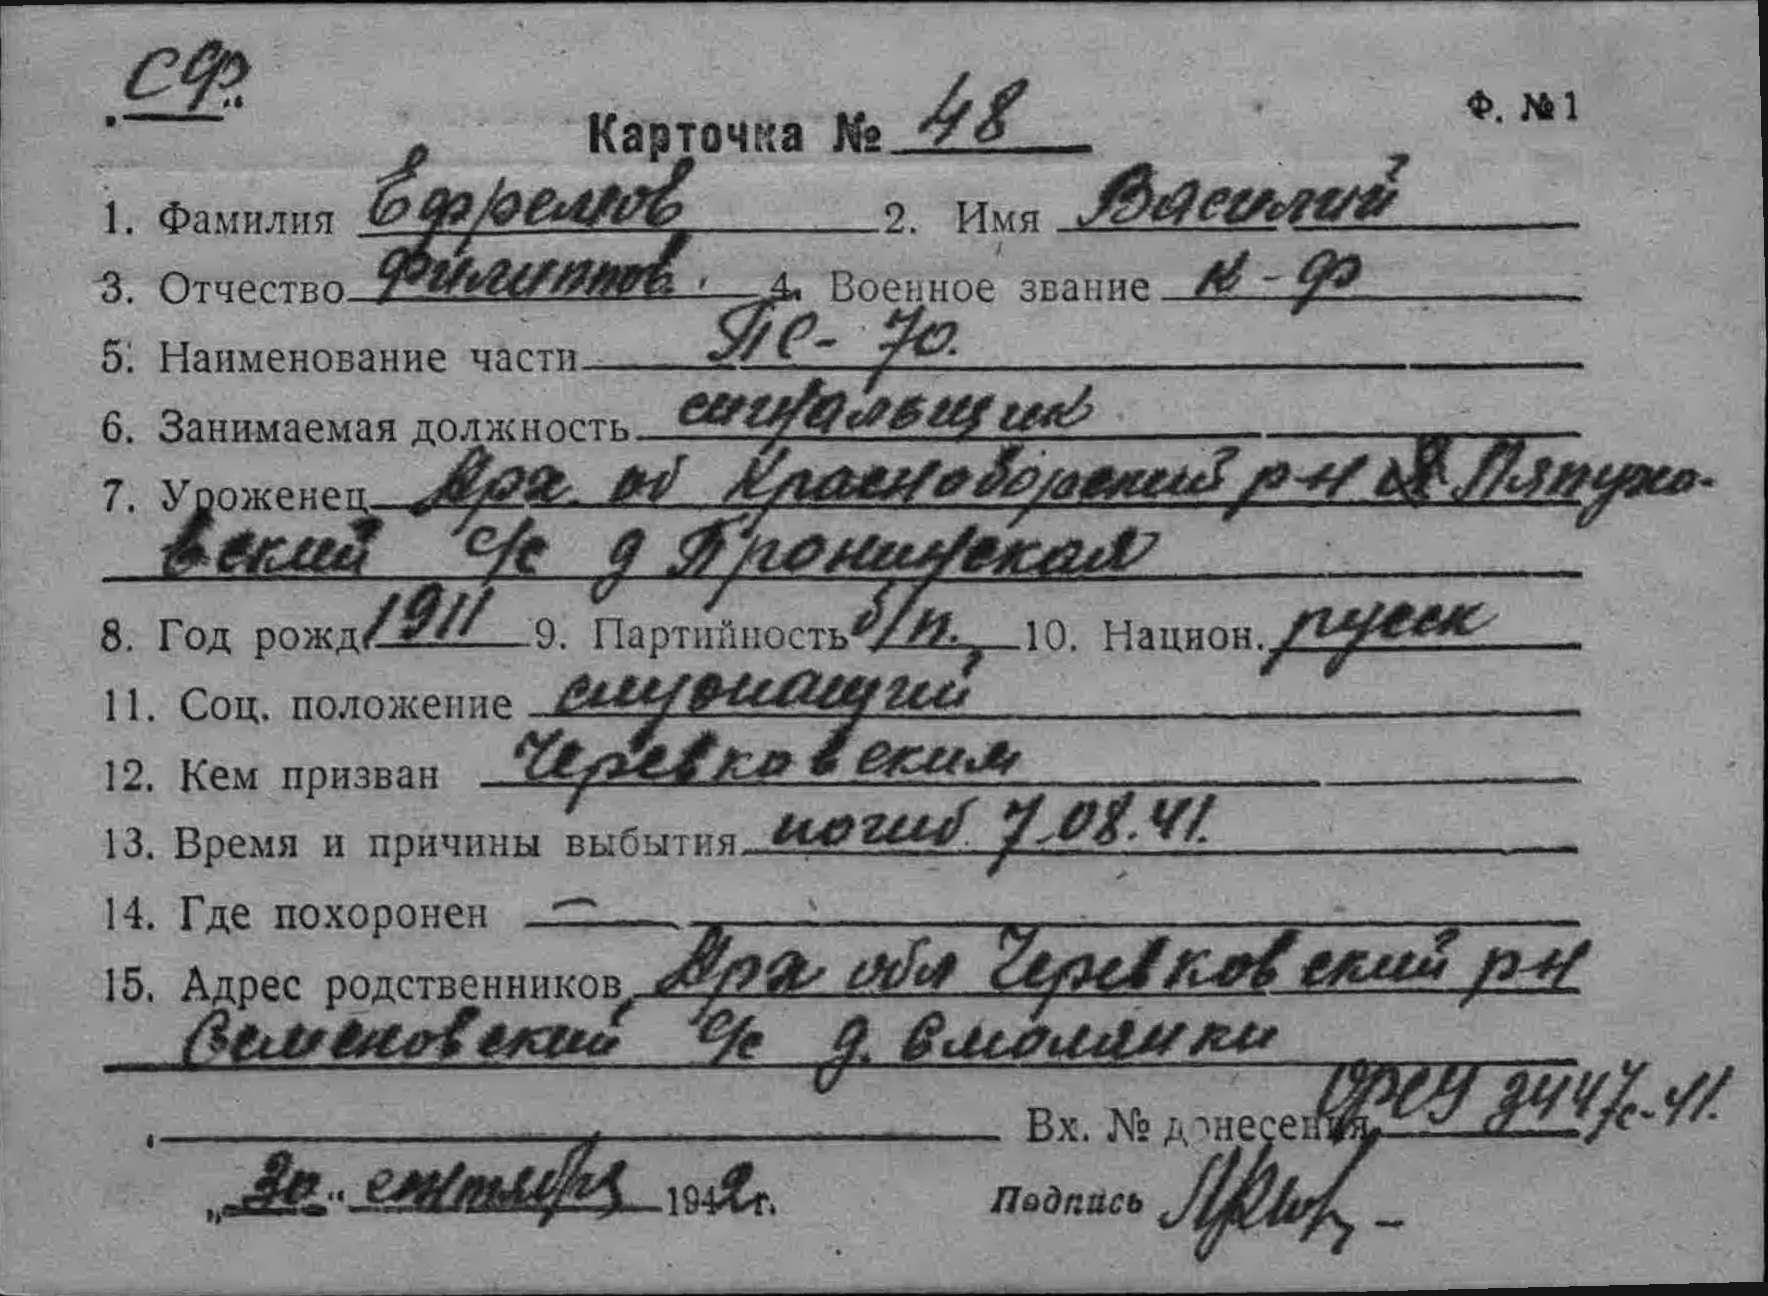 СФ.
Ф. №1
Карточка № 48
1. Фамилия Ефремов 2. Имя Василий
3. Отчество Филиппов. 4. Военное звание к-ф
5. Наименование части ПС-70.
6. Занимаемая должность сигнальщик
7. Уроженец Арх об Красноборский р-н Пятухо-
вский с/с д Пронинская
8. Год рожд. 1911 9. Партийность б/п. 10. Национ. русск
11. Соц. положение служащий
12. Кем призван Черевковским
13. Время и причины выбытия погиб 7.08.41.
14. Где похоронен —
15. Адрес родственников Арх обл Черевковский р-н
Семеновский с/с д. Смолянки
Вх. № донесения 3447с-41.
„30" сентября 1942г. Подпись